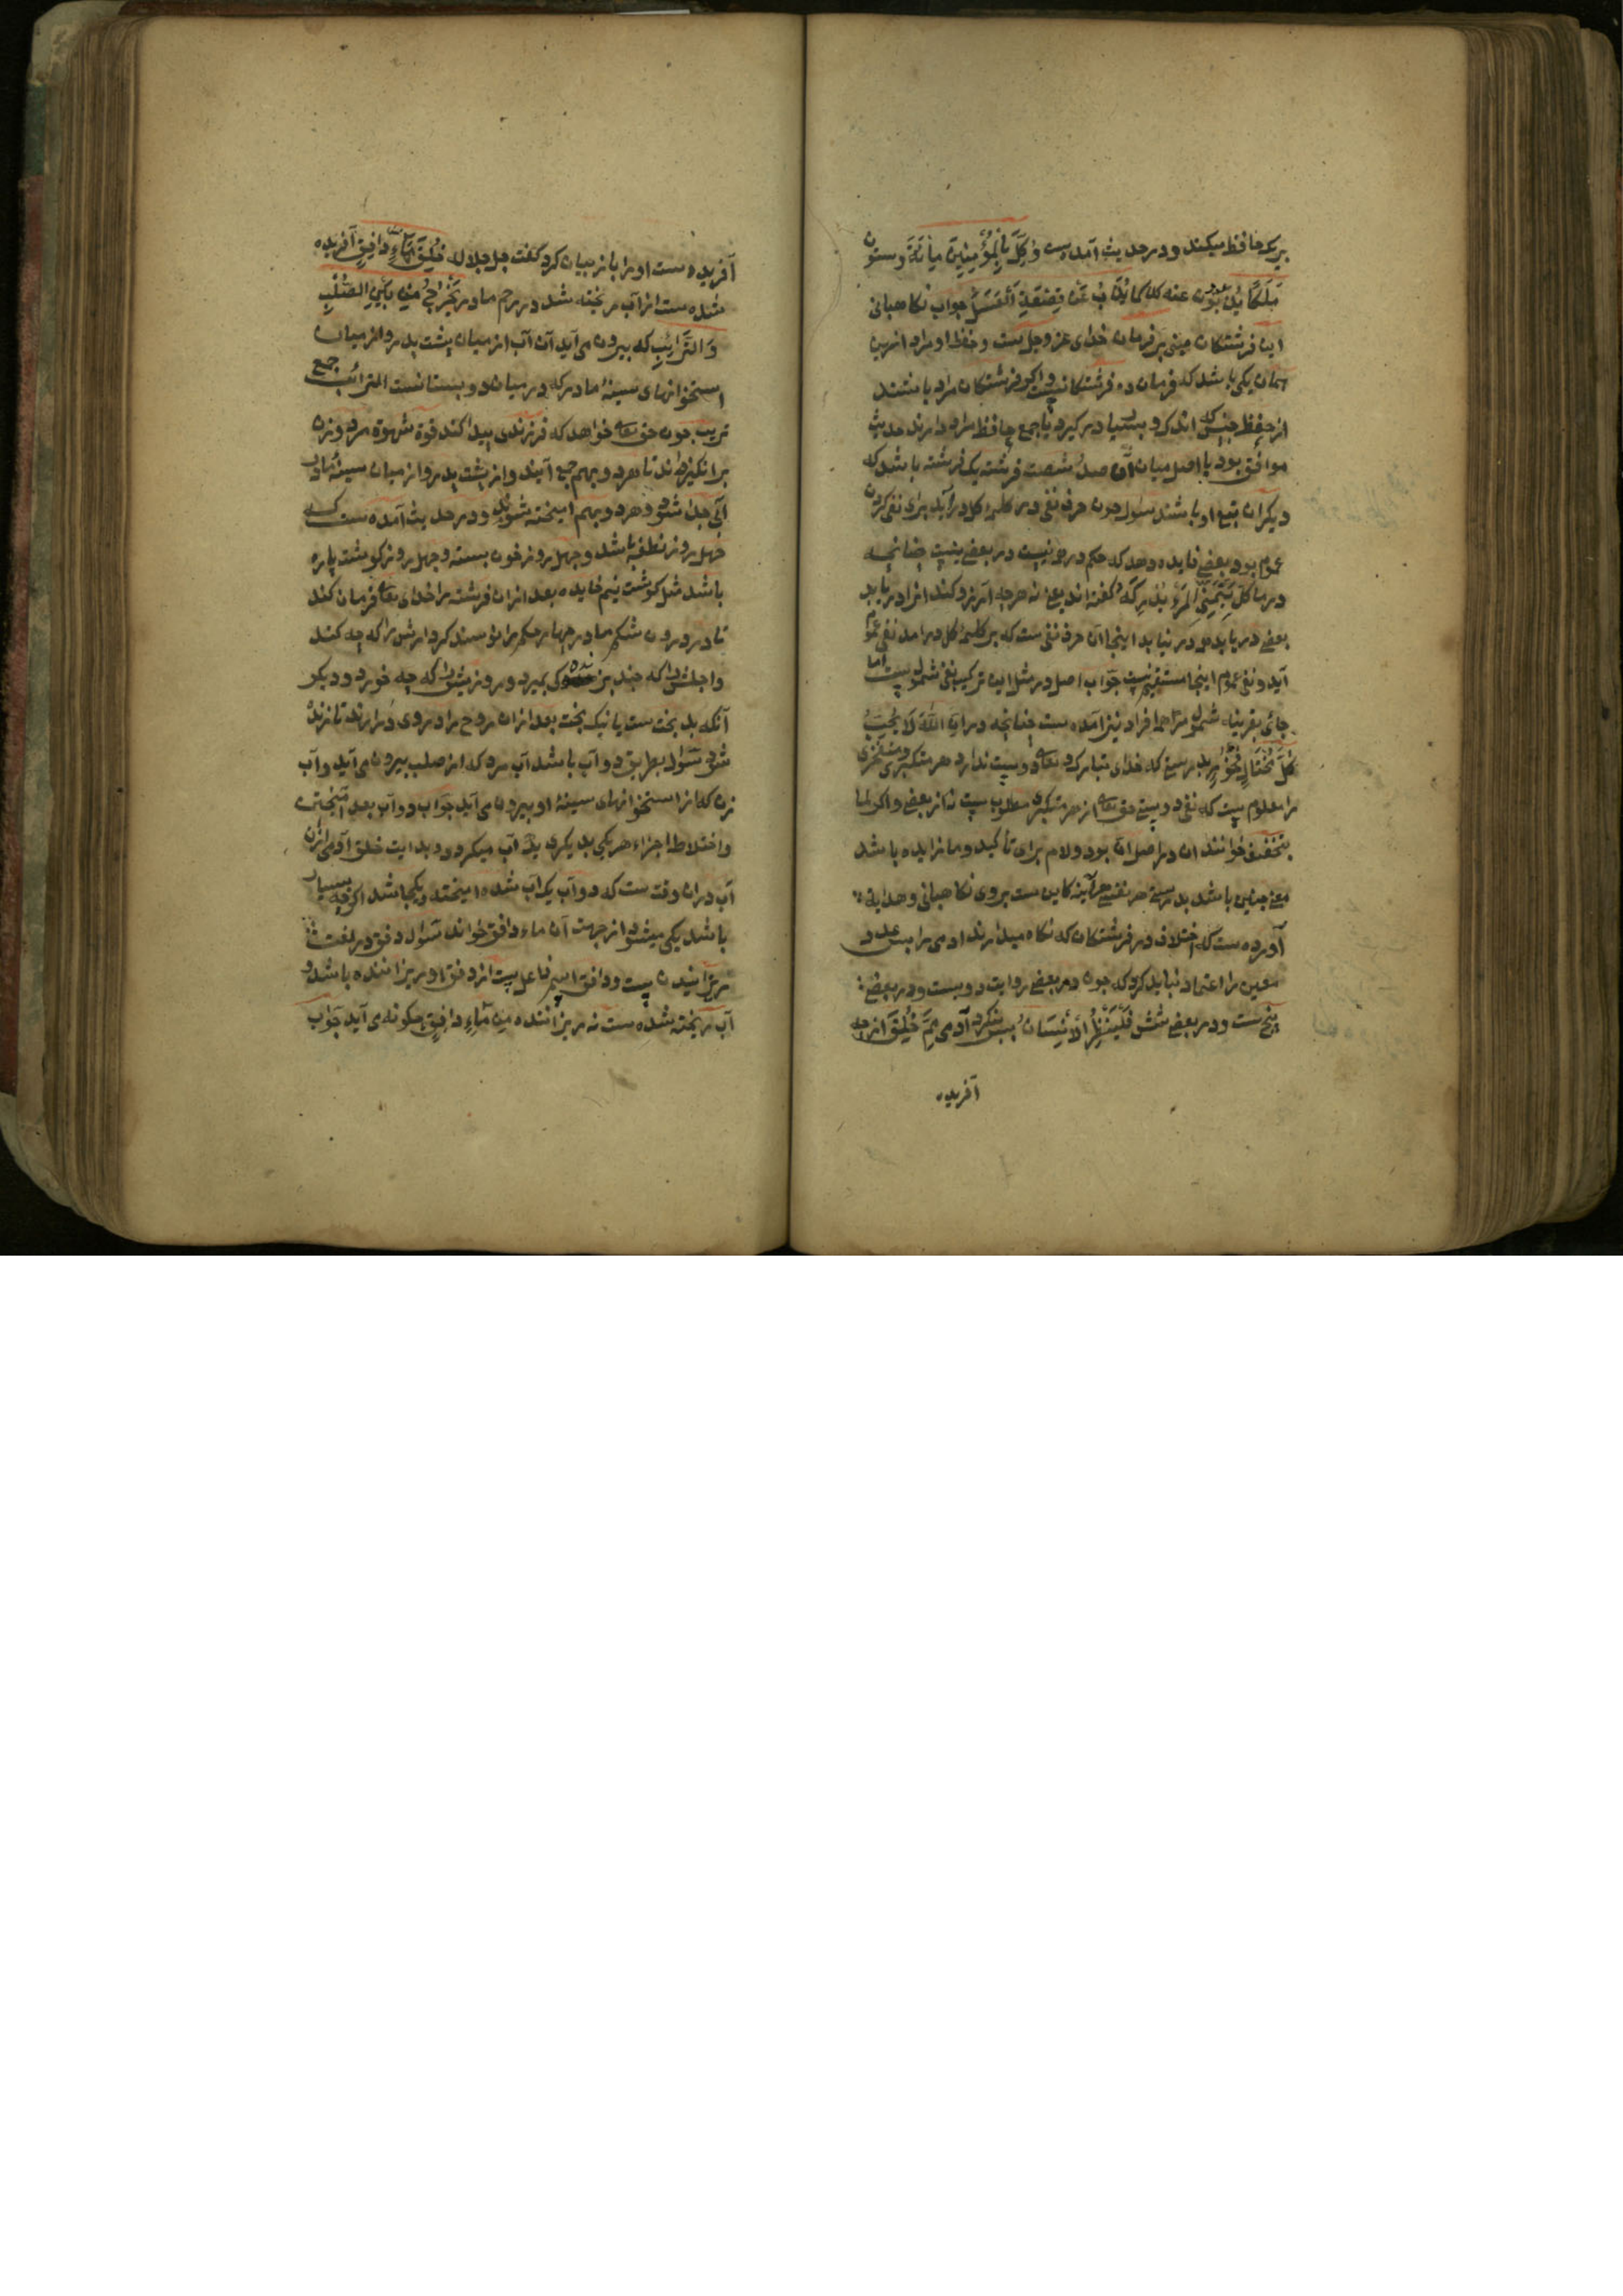 بریک حافظ میکند و در حدیث آمده ست وُکِّلَ بِالْمُؤْمِنِینَ مِائَةٌ وَسِتُّونَ
مَلَکًا یَذُبُّونَ عنه کما یُذَبُّ عَنْ قَصْعَةِ الْعَسَلِ جواب نکاهبانی
این فرشتکان مبنی بر فرمان خدای عز و جل است و حفظ او مراد ازین
همان یکی باشد که فرمان ده فرشتکانست و اکر فرشتکان مراد باشند
از حفظ جنس که اندک و بسیار در کیرد یا جمع حافظ مراد دارند حدیث
موافق بود یا اصل میان آن صد شصت فرشته یک فرشته باشد که
دیکران تبع او باشند سَوال چون حرف نفی در کلمهٔ کل درآید برای نفی کردن
عموم بود بعضی فایده دهد که حکم در بعضی نیست چنانچه
در ما کُلُّ یَتَمَنَّی الْمَرْءُ یُدْرِکُهُ کفته اند یعنی نه هرچه آرزو کند انرا دریابد
بعضی دریابد و بعضی درنیابد اینجا ان حرف نفی ست که بر کلمهٔ کل درامد نفی عموم
آید و نفی عموم اینجا مستقیم نیست جَواب اصل در مثل این ترکیب نفی شمول ست اما
جائی بقرینه شمول مر همه افراد نیز امده ست چنانچه در اِنَّ اللّٰهَ لَا یُحِبُّ
کُلَّ مُخْتَالٍ فَخُورٍ بدرستی که خدای تبارک و تعالی دوست ندارد هر متکبری و متفخری
را معلوم ست که نفی دوستی حق تعالی از هر متکبری مطلوب ست نه از بعضی و اکر لما
بتخفیف خوانند ان در اصل اِنَّ بود و لام برای تأکید و ما زایده باشد
معنی چنین باشد بدرستی هر نفسی هرآینه کاین ست بروی نکاهبانی و هدایه
آورده ست که اختلاف در فرشتکان که نکاه میدارند ادمی را بس عدد
معین را اعتماد نباید کرد که چون در بعضی روایت دویست و در بعضی
پنج ست و در بعضی شش فَلْیَنْظُرِ الْاِنْسَانُ پس بنکرد آدمی مِمَّ خُلِقَ از چه
آفریده
آفریده ست او را باز بیان کرد کفت جل جلاله خُلِقَ مِنْ مَّاءٍ دَافِقٍ آفریده
شده ست از آب ریخته شد در رحم مادر یَخْرُجُ مِنْ بَیْنِ الصُّلْبِ
وَالتَّرَائِبِ که بیرون می آید آن آب از میان پشت پدر و از میان
استخوانهای سینهٔ مادر که در میان دو پستانست الترائب جمع
تریب چون حق تعالی خواهد که فرزندی پیدا کند قوة شهوة مرد و زن
برانکیزاند تا هر دو بهم جمع آیند و از پشت پدر و از میان سینهٔ مادر
آبی جدا شود و هر دو بهم امیخته شود و در حدیث آمده ست که
چهل روز نطفه باشد و چهل روز خون بسته و چهل روز کوشت پاره
باشد مثل کوشت نیم خاییده بعد ازان فرشته را خدای تعالی فرمان کند
تا در درون شکم مادر چهار حکم را نویسد کردارش را که چه کند
و اجلش را که چند بزید و کی بمیرد و روزیش را که چه خورد و دیکر
آنکه بدبخت ست یا نیک بخت بعد ازان روح را در وی درارند تا زنده
شود سَوال بطریق دو آب باشد آب مرد که از صلب بیرون می آید و آب
زن که از استخوانهای سینهٔ او بیرون می آید جَواب دو آب بعد آمیختن
و اختلاط اجزاء هر یکی بدیکری یک آب میکردد و بدایت خلق آدمی ازان
آب دران وقت ست که دو آب یک آب شده امیخته و یکجا شد اکرچه بسیار
باشد یکی میشود از جهت آن ماء دافق خواند سَوال دفق در لغت
ریزانیدن ست و دافق اسم فاعل ست از دفق او ریزاننده باشد و
آب ریخته شده ست نه ریزاننده مِنْ مَاءٍ دَافِقٍ چکونه می آید جَواب